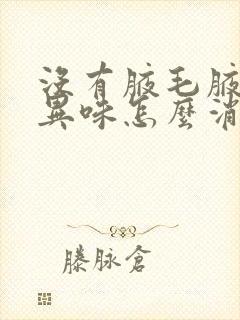 沒有腋毛腋
異味怎麼消
滕脉倉